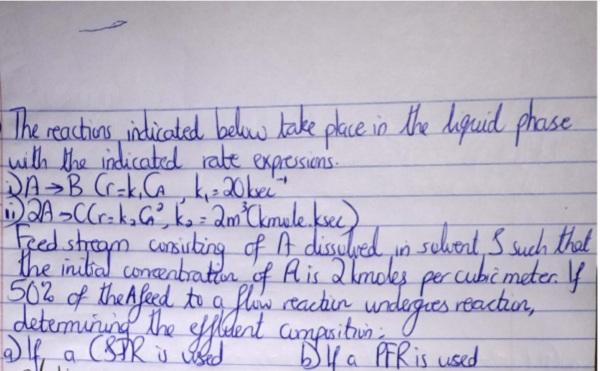 The reactions indicated below take place in the liquid phase
with the indicated rate expressions.
i) A → B (r=k₁CA , k₁ = 20ksec⁻¹
ii) 2A → C (r = k₂CA², k₂ = 2m³(kmole.ksec)
Feed stream consisting of A dissolved in solvent S such that
the initial concentration of A is 2kmoles per cubic meter. If
50% of the A feed to a flow reactor undergoes reaction,
determining the effluent composition:
a) If a CSTR is used b) If a PFR is used